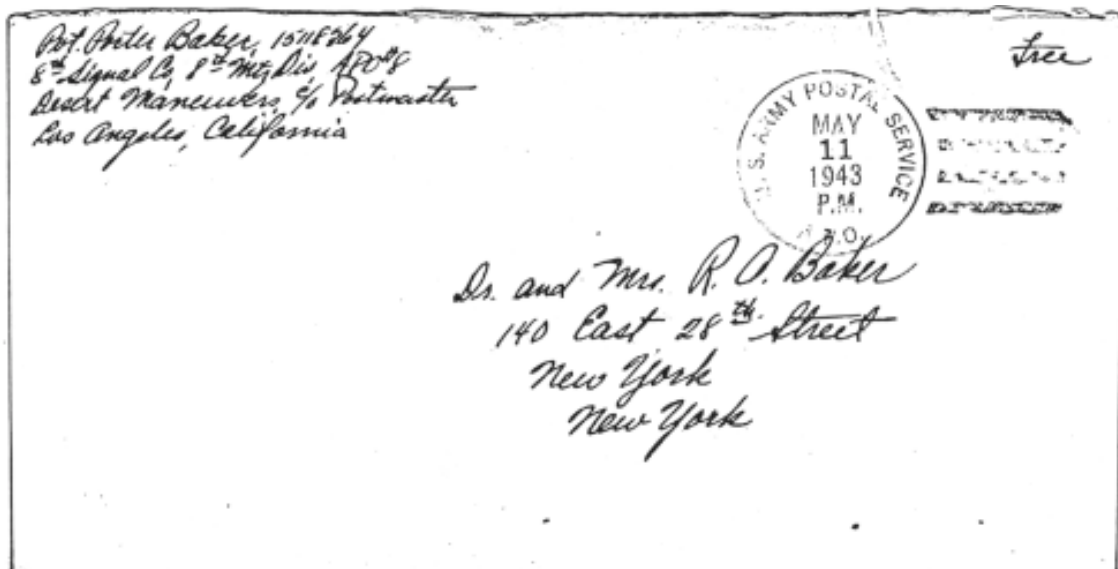 Pvt. Porter Baker, 15118264
8th Signal Co, 8th Mtz Div, APO#8
Desert Maneuvers, c/o Postmaster
Los Angeles, California
Free
U. S. ARMY POSTAL SERVICE
MAY
11
1943
P.M.
Dr. and Mrs. R. O. Baker
140 East 28th Street
New York
New York